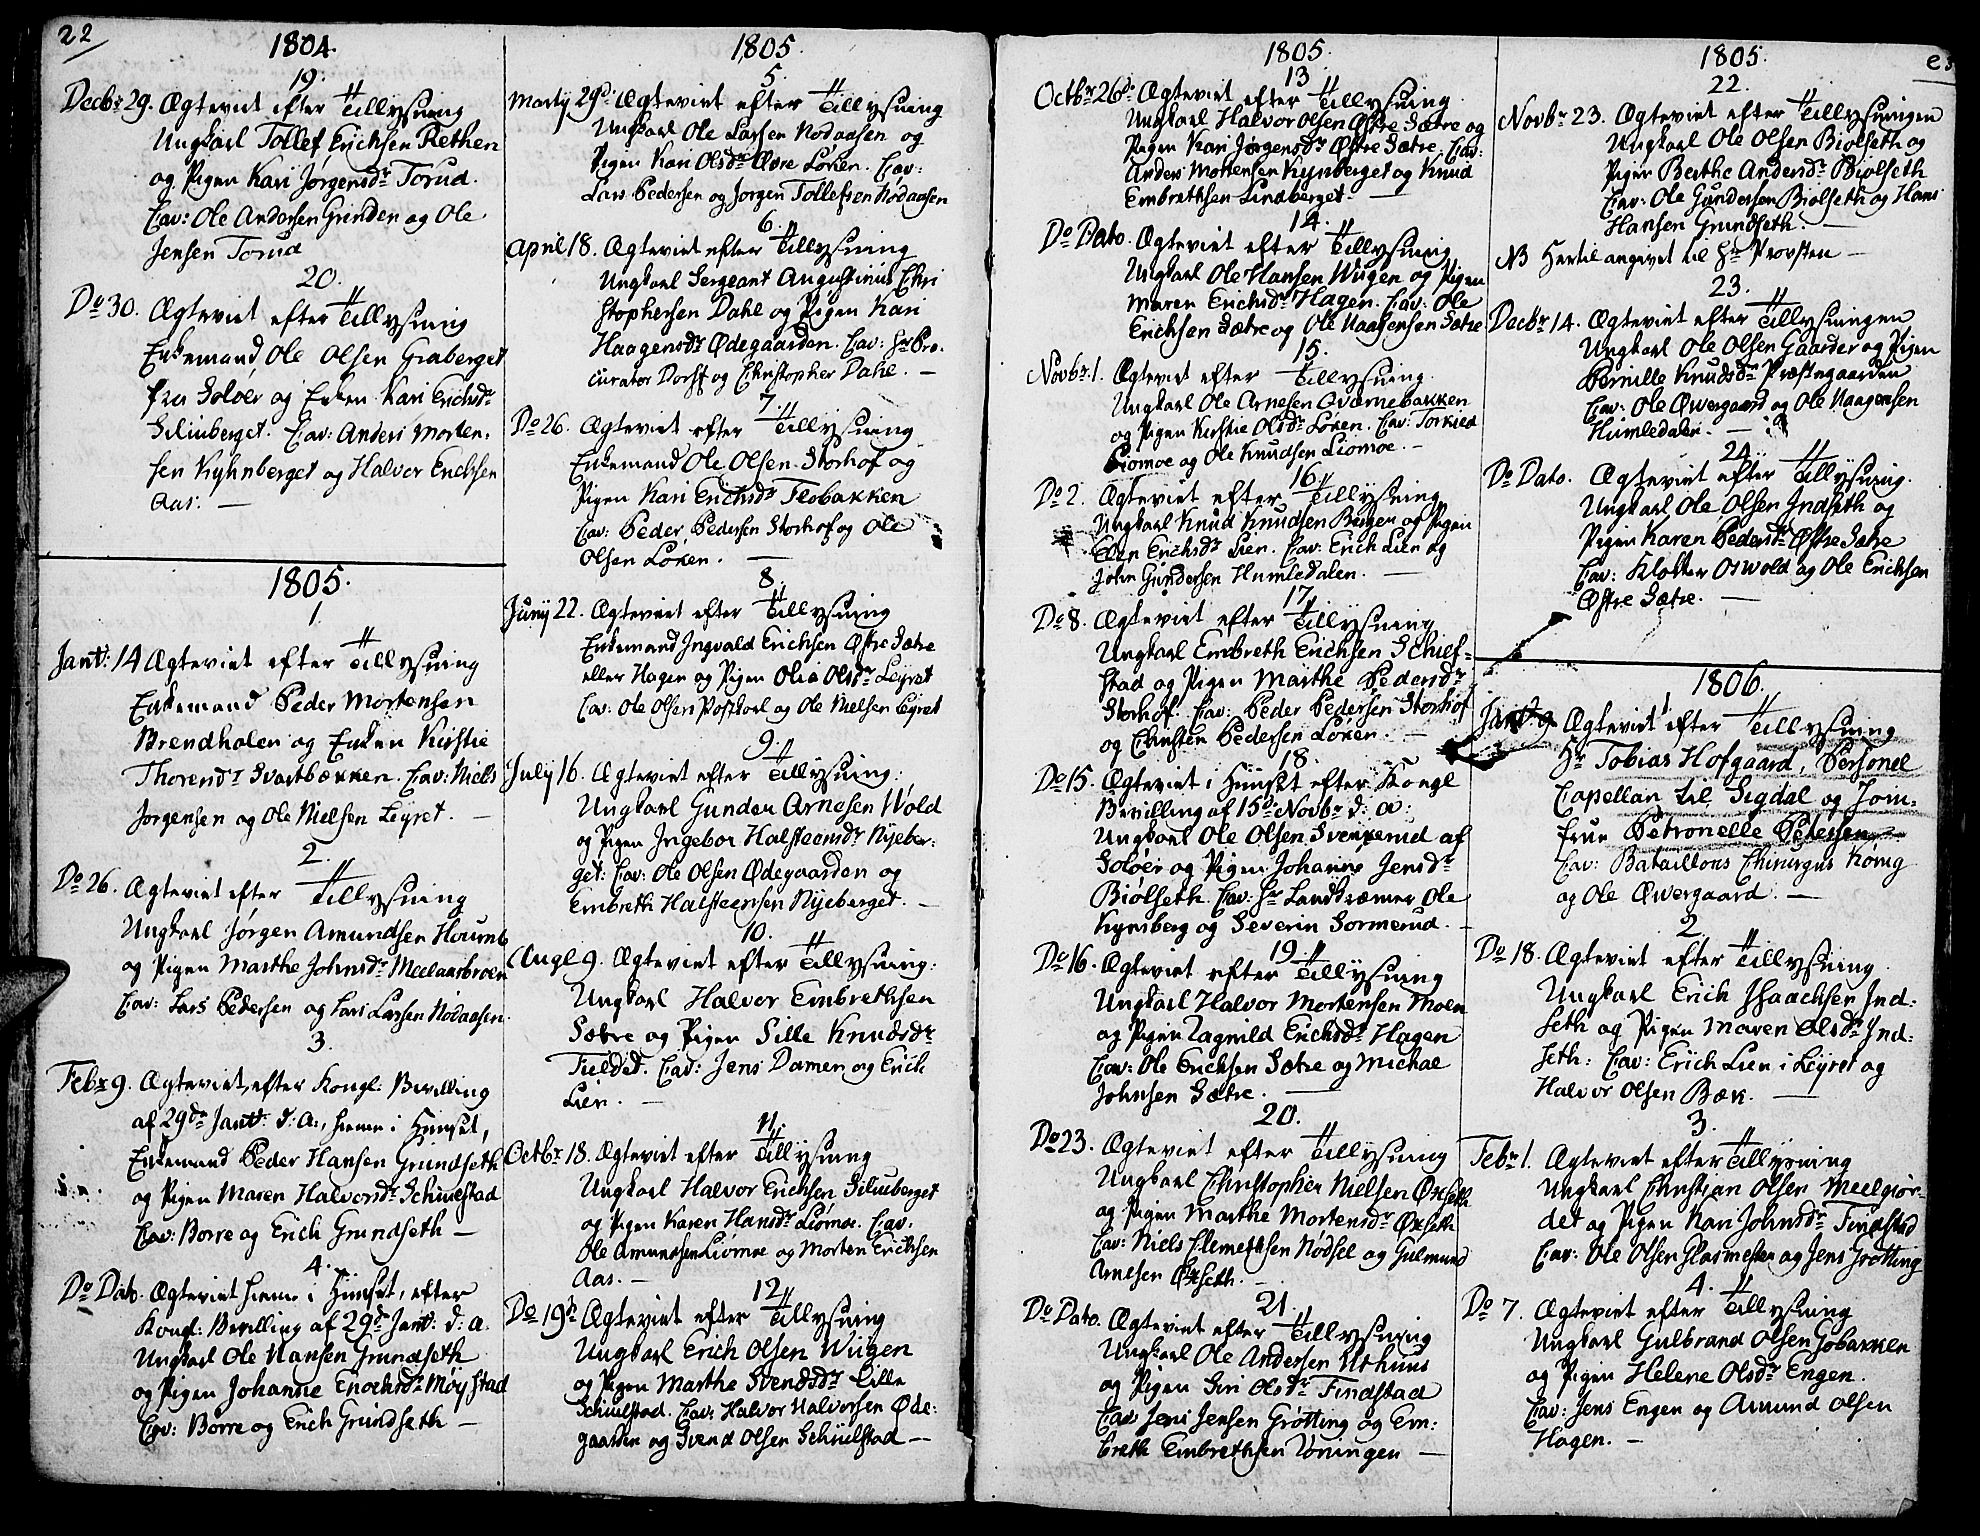 22
1804.
19.
Decbr 29. Ægteviet efter Tillysning
Ungkarl Tollef Erichsen Rethen
og Pigen Kari Jørgensdr Torud.
Cav: Ole Andersen Grinden og Ole
Jensen Torud
20.
Do 30. Ægteviet efter Tillysning
Enkemand Ole Olsen Graberget
fra Soløer og Enken Kari Erichsdr
Siliuberget. Cav: Anders Morten-
sen Kyhnberget og Halvor Erichsen
Aas. —
1805.
1
Jant: 14 Ægteviet efter Tillysning
Enkemand Peder Mortensen
Brendholen og Enken Kirstie
Thorendr Svartbækken. Cav: Niels
Jørgensen og Ole Nielsen Leÿret. —
2.
Do 26. Ægteviet efter Tillysning
Ungkarl Jørgen Amundsen
og Pigen Marthe Johnsdr
Cav: Lars Pedersen og Lars Larsen Nodaasen.
3.
Febr 9. Ægteviet, efter Kongl: Bevilling
af 29de Jant: d: a:, hieme i Huuset,
Enkemand Peder Hansen Grundseth
og Pigen Maren Halvorsdr Schiulstad
Cav: Børre og Erich Grundseth —
4.
Do Dato. Ægteviet hieme i Huuset, efter
Kongl: Bevilling af 29de Jant: d: a.
Ungkarl Ole Hansen Grundseth
og Pigen Johanne Enochsdr Møystad
Cav: Børre og Erich Grundseth —
1805.
5.
Martij 29de Ægteviet efter Tillysning
Ungkarl Ole Larsen Nodaasen og
Pigen Kari Olsdr Øvre Løken. Cav:
Lars Pedersen og Jørgen Tollefsen Nodaasen
6.
April 18. Ægteviet efter Tillysning
Ungkarl Sergeant Augustinus Chri
stophersen Dahl og Pigen Kari
Haagensdr Ødegaarden. Cav: Hr Pro-
curator Dorff og Christopher Dahl. —
7.
Do 26. Ægteviet efter Tillysning
Enkemand Ole Olsen Storhof og
Pigen Kari Erichsdr Flobakken
Cav: Peder Pedersen Storhof og Ole
Olsen Løken. —
8.
Junij 22. Ægteviet efter Tillysning
Enkemand Ingvald Erichsen Østre Sætre
eller Hagen og Pigen Olia Olsdr Leÿret
Cav: Ole Olsen Postkarl og Ole Nielsen Leÿret
9.
Julij 16. Ægteviet efter Tillysning:
Ungkarl Gunder Arnesen Wold
og Pigen Ingebor Halsteensdr Nÿeber-
get: Cav: Ole Olsen Ødegaarden og
Embreth Halsteensen Nÿeberget. —
10.
Augl 9. Ægteviet efter Tillysning:
Ungkarl Halvor Embrethsen
Sætre og Pigen Sille Knudsdr
Fieldet. Cav: Jens Damen og Erich
Lien. —
11.
Octbr 18. Ægteviet efter Tillysning
Ungkarl Halvor Erichsen Siliuberget
og Pigen Karen Hansdr Liømoe. Cav:
Ole Amundsen Liømoe og Morten Erichsen
Aas. —
12.
Do 19de Ægteviet efter Tillysning
Ungkarl Erich Olsen Wügen
og Pigen Marthe Svendsdr Lille
Schiulstad. Cav: Halvor Halvorsen Øde-
gaarden og Svend Olsen Schiulstad —
1805.
13.
Octbr 26de Ægteviet efter Tillysning.
Ungkarl Halvor Olsen Østre Sætre og
Pigen Kari Jørgensdr Østre Sætre. Cav:
Anders Mortensen Kynberget og Knud
Embrethsen Lindberget. —
14.
Do Dato. Ægteviet efter Tillysning
Ungkarl Ole Hansen Wügen og Pigen
Maren Erichsdr Hagen. Cav: Ole
Erichsen Sætre og Ole Haagensen Sætre
15.
Novbr 1. Ægteviet efter Tillysning.
Ungkarl Ole Arnesen Qværnebakken
og Pigen Kirstie Olsdr Løken. Cav: Torkild
Liomoe og Ole Knudsen Liomoe. —
16.
Do 2. Ægteviet efter Tillysning
Ungkarl Knud Knudsen Bergen og Pigen
Elen Erichsdr Lien. Cav: Erich Lien og
John Gundersen Humledalen. —
17.
Do 8. Ægteviet efter Tillysning
Ungkarl Embreth Erichsen Schief-
stad og Pigen Marthe Pedersdr
Storhof. Cav: Peder Pedersen Storhof
og Christen Pedersen Løken. —
18.
Do 15. Ægteviet i Huuset efter Kongl
Bevilling af 15de Novbr d: a:
Ungkarl Ole Olsen Svenkerud af
Soløer og Pigen Johanne Jensdr
Biølseth. Cav: Hr Landkræmer Ole
Kynsberg og Severin Sormerud. —
19.
Do 16. Ægteviet efter Tillysning
Ungkarl Halvor Mortensen Moen
og Pigen Ragnild Erichsdr Hagen
Cav: Ole Erichsen Sætre og Michal
Johnsen Sætre. —
20.
Do 23. Ægteviet efter Tillysning
Ungkarl Christopher Nielsen Øxseth
og Pigen Marthe Mortensdr Øxseth
Cav: Niels Clemetsen Nødsel og Gulmund
Arnesen Øxseth. —
21.
Do Dato. Ægteviet efter Tillysning
Ungkarl Ole Andersen Uthuus
og Pigen Siri Olsdr Findstad
Cav Jens Jensen Grøtting og Em-
breth Embrethsen Løningen —
1805.
22.
Novbr 23. Ægteviet efter Tillysningen
Ungkarl Ole Olsen Biølseth og
Pigen Berthe Andersdr Biølseth
Cav: Ole Gundersen Biølseth og Hans
Hansen Grundseth. —
NB Hertil angivet til Hr Provsten —
23.
Decbr 14. Ægteviet efter Tillysningen
Ungkarl Ole Olsen Gaarder og Pigen
Pernille Knudsdr Præstegaarden
Cav: Ole Øwergaard og Ole Haagensen
Humledalen. —
24.
Do Dato. Ægteviet efter Tillysning.
Ungkarl Ole Olsen Indseth og
Pigen Karen Pedersdr Østre Sætre
Cav: Klokker Oswold og Ole Erichsen
Østre Sætre. —
1806.
1
Jant: 9 Ægteviet efter Tillysning
Hr Tobias Hofgaard, Personel
Capellan til Sigdal og Jom-
frue Petronelle Petersen
Cav: Bataillons Chirurgus König
og Ole Øwergaard. —
2
Do 18. Ægteviet efter Tillysning
Ungkarl Erich Isaachsen Ind-
seth og Pigen Maren Olsdr Ind-
seth: Cav: Erich Lien i Leÿret og
Halvor Olsen Bæk. —
3.
Febr 1. Ægteviet efter Tillysning
Ungkarl Christian Olsen Meelgiør-
det og Pigen Kari Johnsdr Findstad
Cav: Ole Olsen Glasmester og Jens Grøtting
4.
Do 7. Ægteviet efter Tillysning
Ungkarl Gulbrand Olsen Gobakken
og Pigen Helene Olsdr Engen.
Cav: Jens Engen og Amund Olsen
Hagen. —